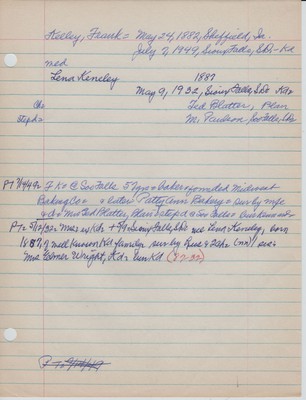 Keeley, Frank = May 24, 1882, Sheffield, Ia.
July 7, 1949, Sioux Falls, SD. - Kd
med
Lena Keneley 1887
May 9, 1932, Sioux Falls, SD Kd
Ch Ted Platter, Plan
Steph = M. Paulson Soo Falls, SD
PT 7/14/49 F K @ Soo Falls 37 yrs = baker = founded Midwest
Baking Co = & later Patty Ann Bakery = sur by wife
& d = Mrs Ted Platter, Plan & step d = Soo Falls =
PT = 5/12/32 = Mrs Kd + 5/9 Soux Falls, SD nee Lena Keneley, born
1887, of well known Kd family sur by Luse & 2 chr (nn)
Mrs Elmer Wright, Kd = bur Kd (32-32)
P To 7/14/49